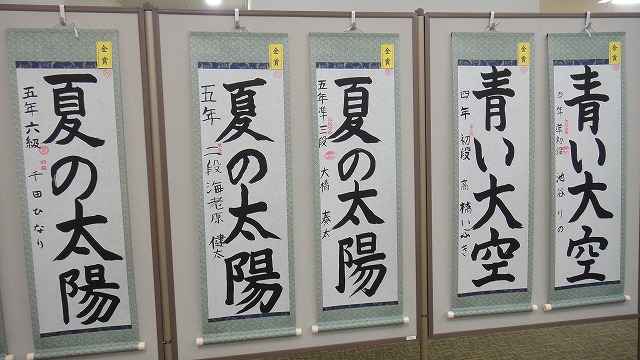 金賞
夏の太陽
五年 六級 千田ひなり
金賞
夏の太陽
五年 二段 海老原 健太
金賞
夏の太陽
五年 準三段 大橋 泰太
金賞
青い大空
四年 初段 高橋いぶき
金賞
青い大空
四年 準初段 池谷りの